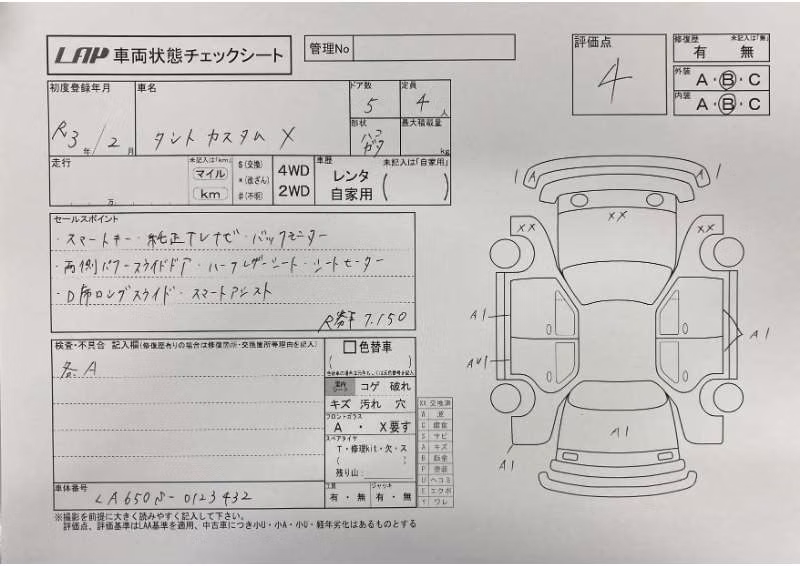 LAP 車両状態チェックシート
管理No
評価点
4
修復歴 未記入は「無」
有 無
外装 A・B・C
内装 A・B・C
初度登録年月
R3年/2月
車名
タント カスタム X
ドア数
5
定員
4人
形状
ハコ
最大積載量
kg
走行
万
未記入は「km」
マイル
km
$(交換)
*(改ざん)
#(不明)
4WD
2WD
車歴 未記入は「自家用」
レンタ
自家用
セールスポイント
・スマートキー・純正TVナビ・バックモニター
・両側パワースライドドア・ハーフレザーシート・シートヒーター
・D席ロングスライド・スマートアシスト
7.150
検査・不具合 記入欄(修復歴有りの場合は修復箇所・交換箇所等理由を記入)
各A
色替車
コゲ 破れ
キズ 汚れ 穴
フロントガラス
A ・ X要す
スペアタイヤ
T・修理kit・欠・ス
残り山:
工具
有・無
ジャッキ
有・無
XX 交換済
S サビ
A キズ
U ヘコミ
E エクボ
Y ワレ
車体番号
LA650S-0123432
※撮影を前提に大きく読みやすく記入して下さい。
評価点、評価基準はLAA基準を適用、中古車につき小U・小A・小U・経年劣化はあるものとする
A
A
XX
XX
XX
A1
A1
AU1
A1
A1